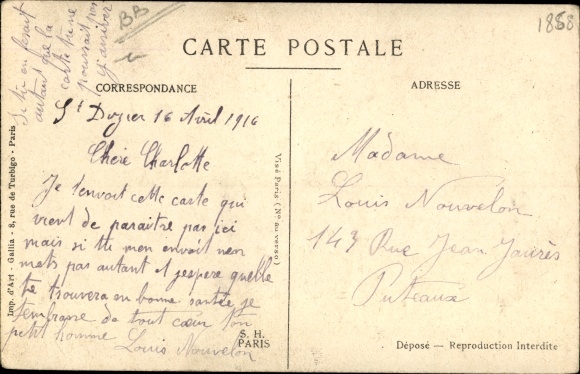 Si tu en ferait
autant que la
carte ne
pourrait pas
y arriver
BB
1858
CARTE POSTALE
CORRESPONDANCE
ADRESSE
St Dizier 16 Avril 1916
Chère Charlotte
Je t'envoit cette carte qui
vient de paraitre par ici
mais si tu men envoit nen
mets pas autant et jespere quelle
te trouvera en bonne santée je
tembrasse de tout cœur ton
petit homme
Louis Nouvelon
Madame
Louis Nouvelon
143 Rue Jean Jaurès
Puteaux
Imp. d'Art - Gallia - 8, rue de Turbigo - Paris
Visé Paris (No au verso)
S. H.
PARIS
Déposé — Reproduction Interdite